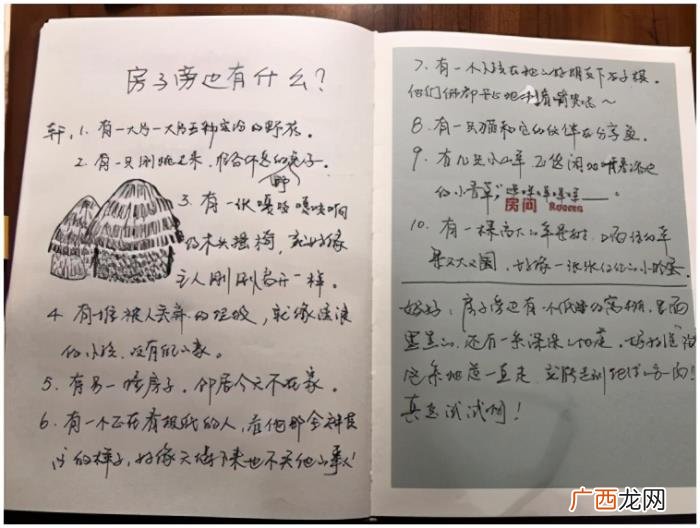 房子旁边有什么？
轩：1. 有一大片一大片五种颜色的野花。
2. 有一只刚跳过来，准备休息的兔子。
野
3. 有一张嘎吱嘎吱响
的木头摇椅，就好像
主人刚刚离开一样。
4. 有堆被人丢弃的垃圾，就像流浪
的小孩，没有自己的家。
5. 有另一幢房子，邻居今天不在家。
6. 有一个正在看报纸的人，看他那全神贯
注的样子，好像天塌下来也不关他的事！
7. 有一个小孩在和她的好朋友下石子棋。
他们俩都开心地
8. 有一只猫和它的伙伴在分享鱼。
9. 有几只小山羊正悠闲地啃着路边
的小青草，“咩咩咩咩咩___。
房间 Rooms
10. 有一棵高大的苹果树，上面结的苹
果又大又圆，好像一张张红红的小脸蛋。
妈妈：房子旁边有一个低矮的窝棚，里面
黑黑的，还有一条深深的地道，妈妈
这条地道一直走，
真想试试啊！
广西龙网